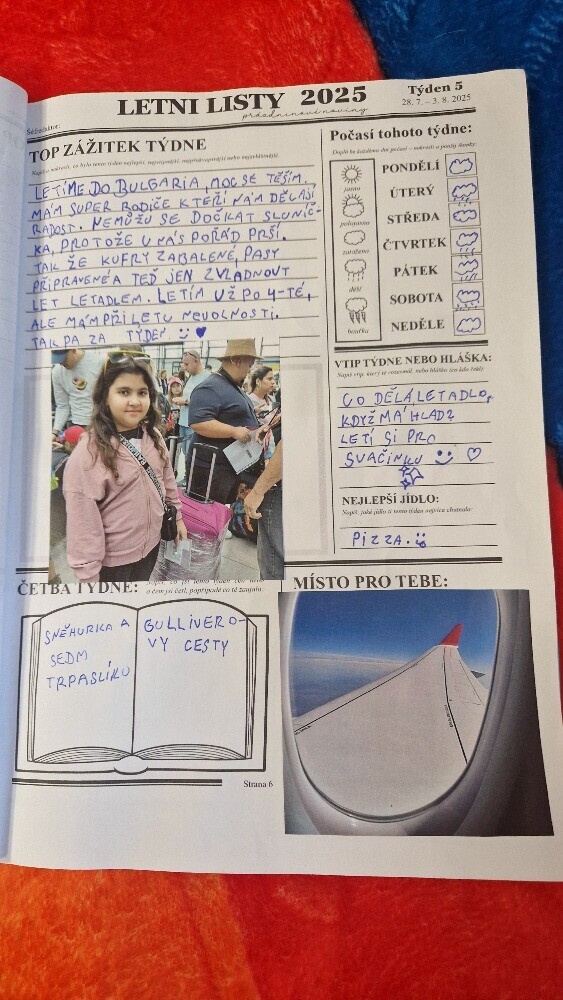 LETNI LISTY 2025
prázdninové noviny
Týden 5
28. 7. – 3. 8. 2025
TOP ZÁŽITEK TÝDNE
LETÍME DO BULGARIA, MOC SE TĚŠÍM,
MÁM SUPER RODIČE KTEŘÍ NÁM DĚLAJÍ
RADOST. NEMŮŽU SE DOČKAT SLUNÍČ-
KA, PROTOŽE U NÁS POŘÁD PRŠÍ.
TAK ŽE KUFRY ZABALENÉ, PASY
PŘIPRAVENÉ A TEĎ JEN ZVLÁDNOUT
LET LETADLEM. LETÍM UŽ PO 4-TÉ,
ALE MÁM PŘI LETU NEVOLNOSTI.
TAK PA ZA TÝDEN.
Počasí tohoto týdne:
jasno
polojasno
zataženo
déšť
bouřka
PONDĚLÍ
ÚTERÝ
STŘEDA
ČTVRTEK
PÁTEK
SOBOTA
NEDĚLE
VTIP TÝDNE NEBO HLÁŠKA:
CO DĚLÁ LETADLO,
KDYŽ MÁ HLAD?
LETÍ SI PRO
SVAČINKU
NEJLEPŠÍ JÍDLO:
PIZZA.
ČETBA TÝDNE:
SNĚHURKA A
SEDM
TRPASLÍKU
GULLIVERO-
VY CESTY
Strana 6
MÍSTO PRO TEBE: